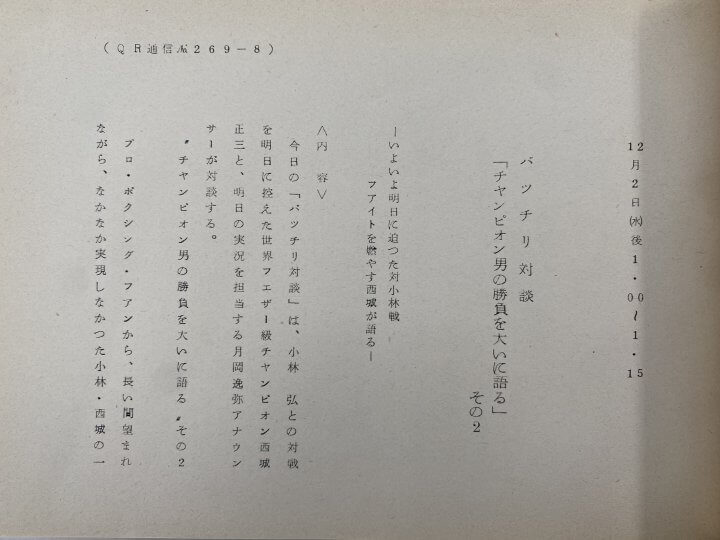 12月2日(水)後1・00〜1・15
バツチリ対談
「チヤンピオン男の勝負を大いに語る」
その2
―いよいよ明日に迫つた対小林戦
フアイトを燃やす西城が語る―
〈内 容〉
今日の「バツチリ対談」は、小林 弘との対戦
を明日に控えた世界フエザー級チヤンピオン西城
正三と、明日の実況を担当する月岡逸弥アナウン
サーが対談する。
〝チヤンピオン男の勝負を大いに語る〟その2
プロ・ボクシング・フアンから、長い間望まれ
ながら、なかなか実現しなかつた小林・西城の一
(QR通信№269－8)